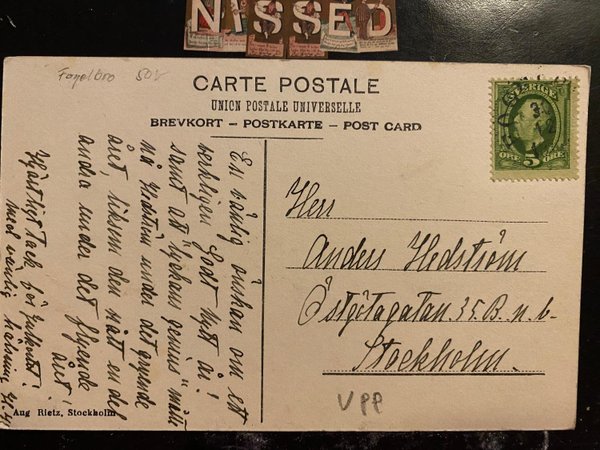 NISSED
Fogelbro 50:-
CARTE POSTALE
UNION POSTALE UNIVERSELLE
BREVKORT – POSTKARTE – POST CARD
SVERIGE
ÖRE 5 ÖRE
Herr
Anders Hedström
Östgötagatan 35. B. n. b.
Stockholm.
En vänlig önskan om ett
verkligen Godt nytt år!
samt att "lyckans genius" måtte
nå Hedström under det gryende
året, liksom den nått en del
andra under det flyende
året!
Hjärtligt Tack för julkortet!
med vänlig hälsning
Aug Rietz, Stockholm
VPP